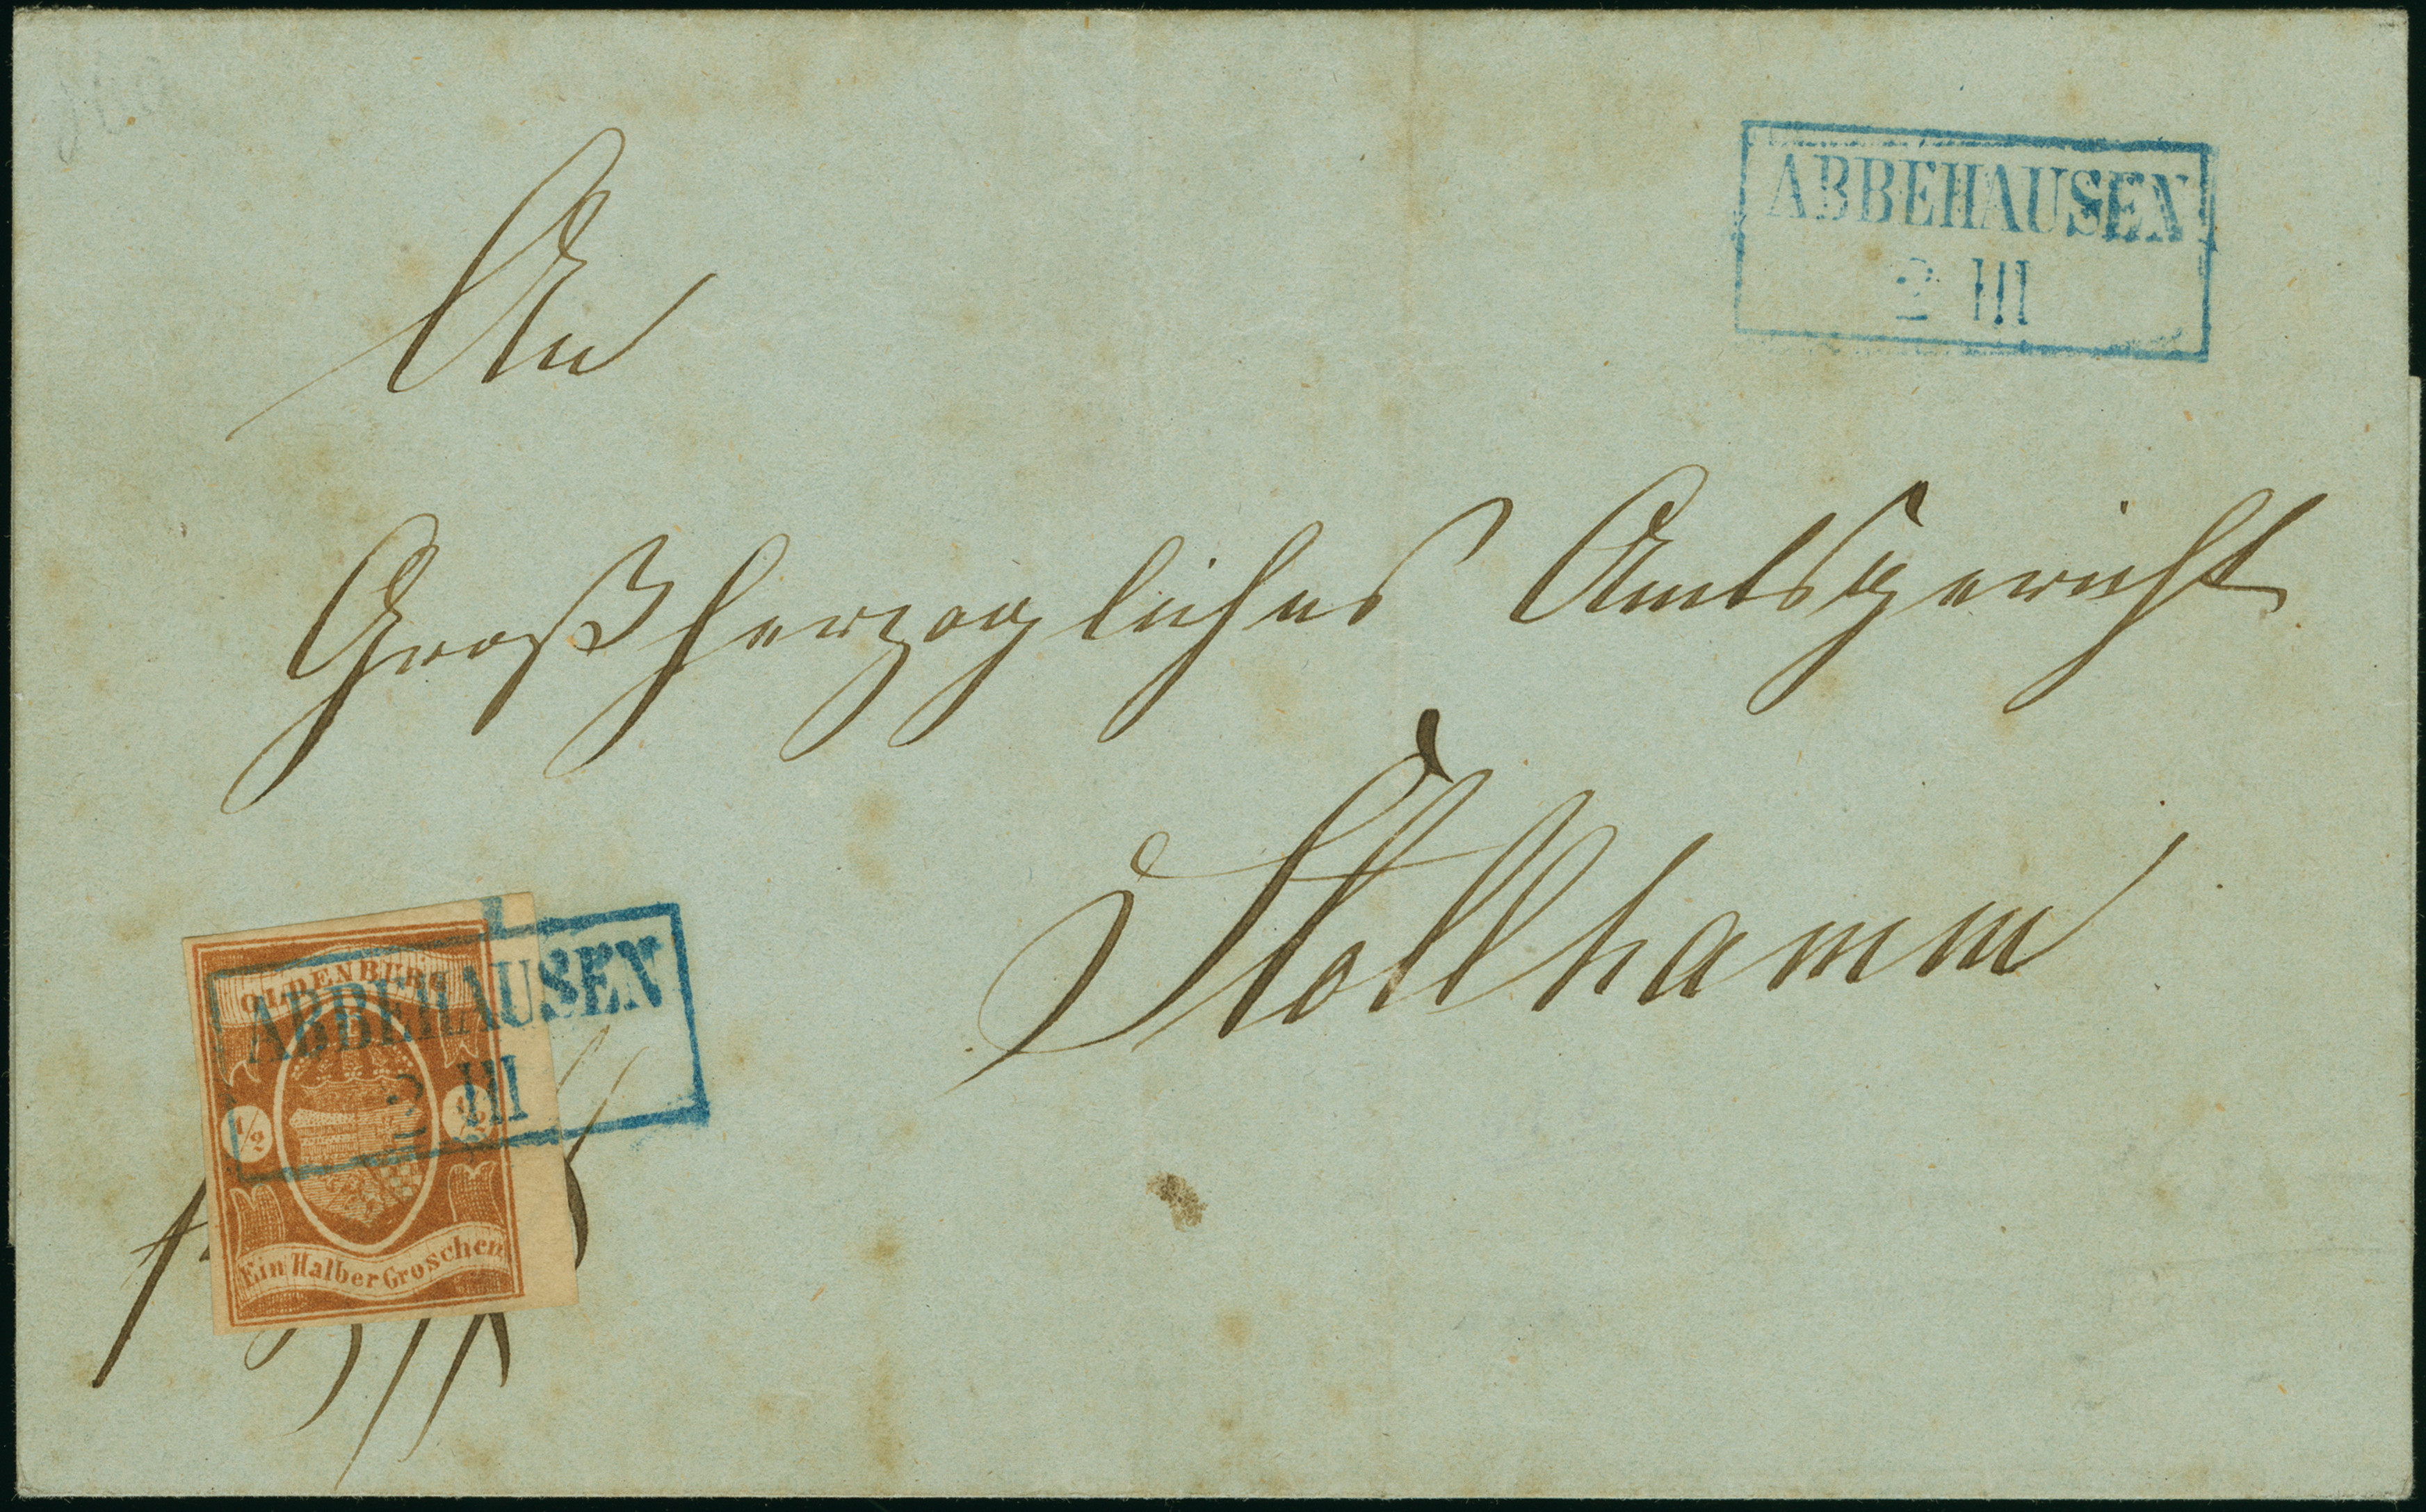 ABBEHAUSEN
2 III
An
Großherzogliches Amtsgericht
Stollhamm
OLDENBURG
ABBEHAUSEN
2 III
1/2 1/2
Ein Halber Groschen